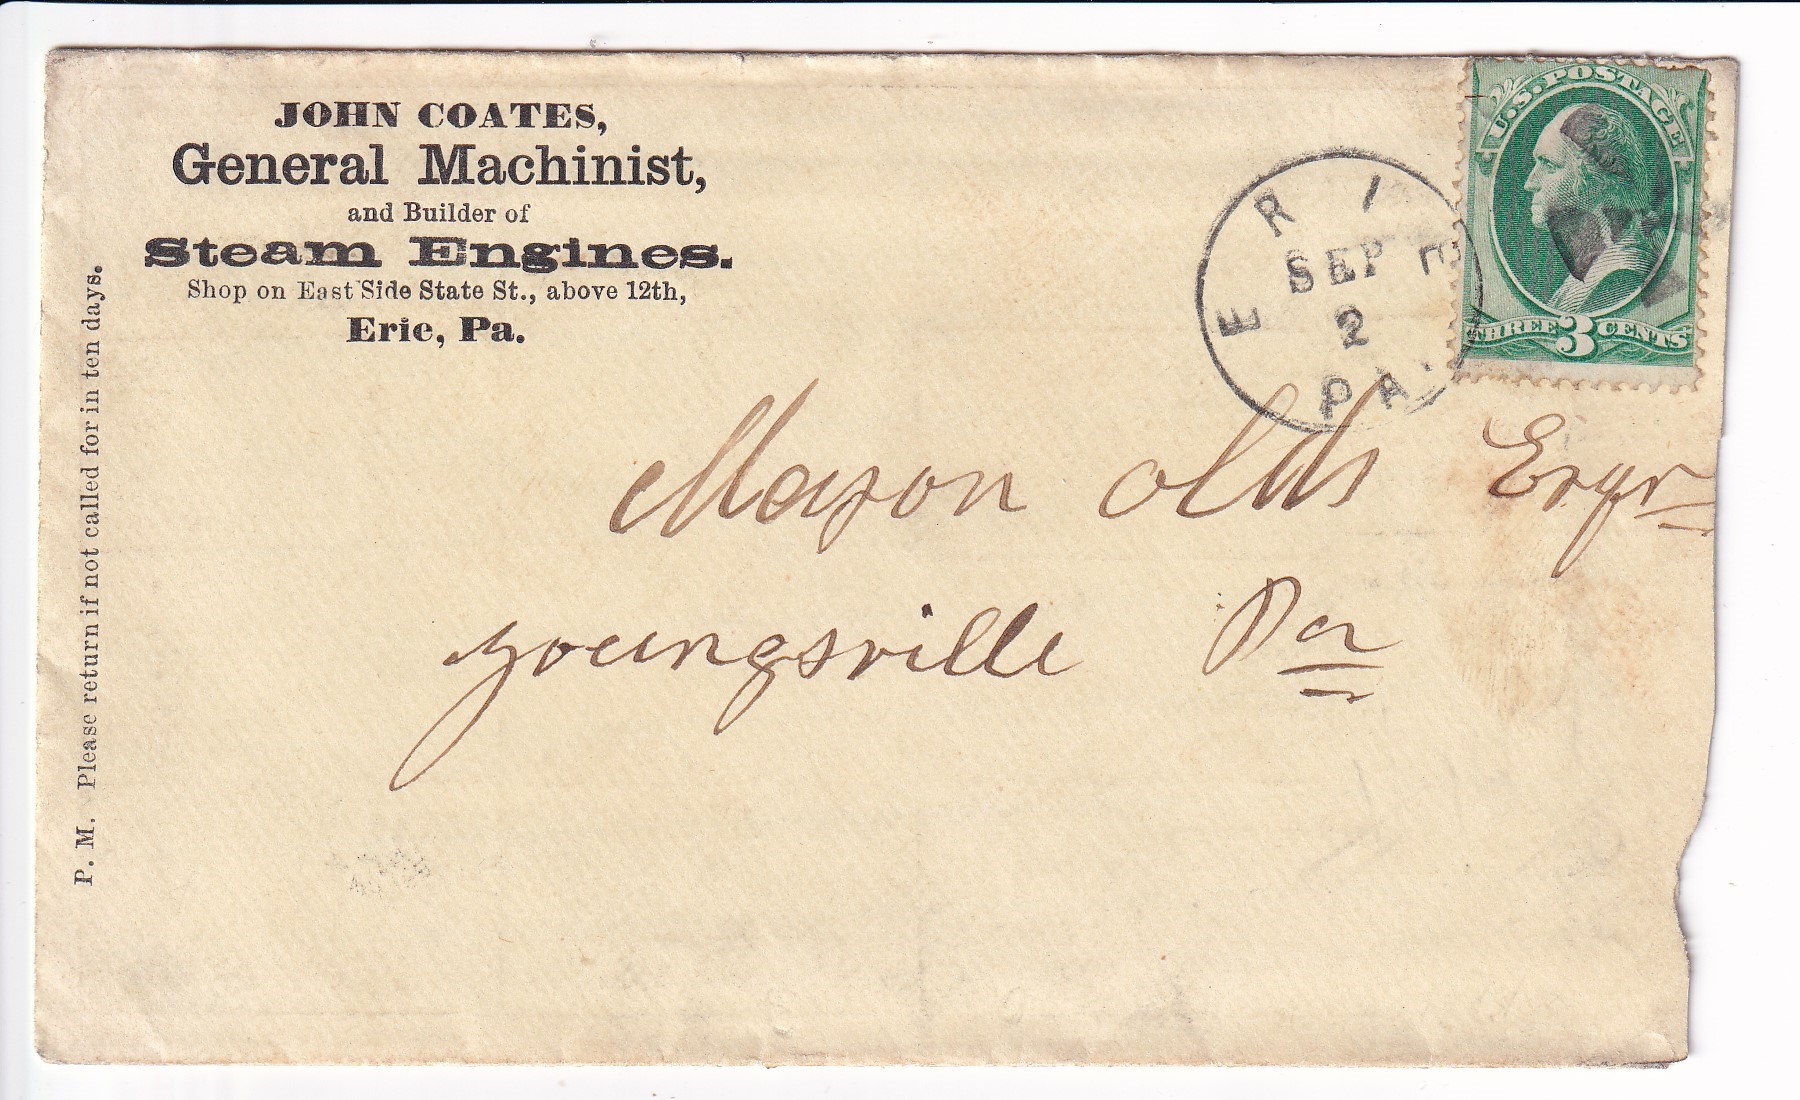 JOHN COATES,
General Machinist,
and Builder of
Steam Engines.
Shop on East Side State St., above 12th,
Erie, Pa.
P. M. Please return if not called for in ten days.
ERIE
SEP
2
PA.
U.S. POSTAGE
THREE 3 CENTS
Mason Olds Esqr
Youngsville Pa